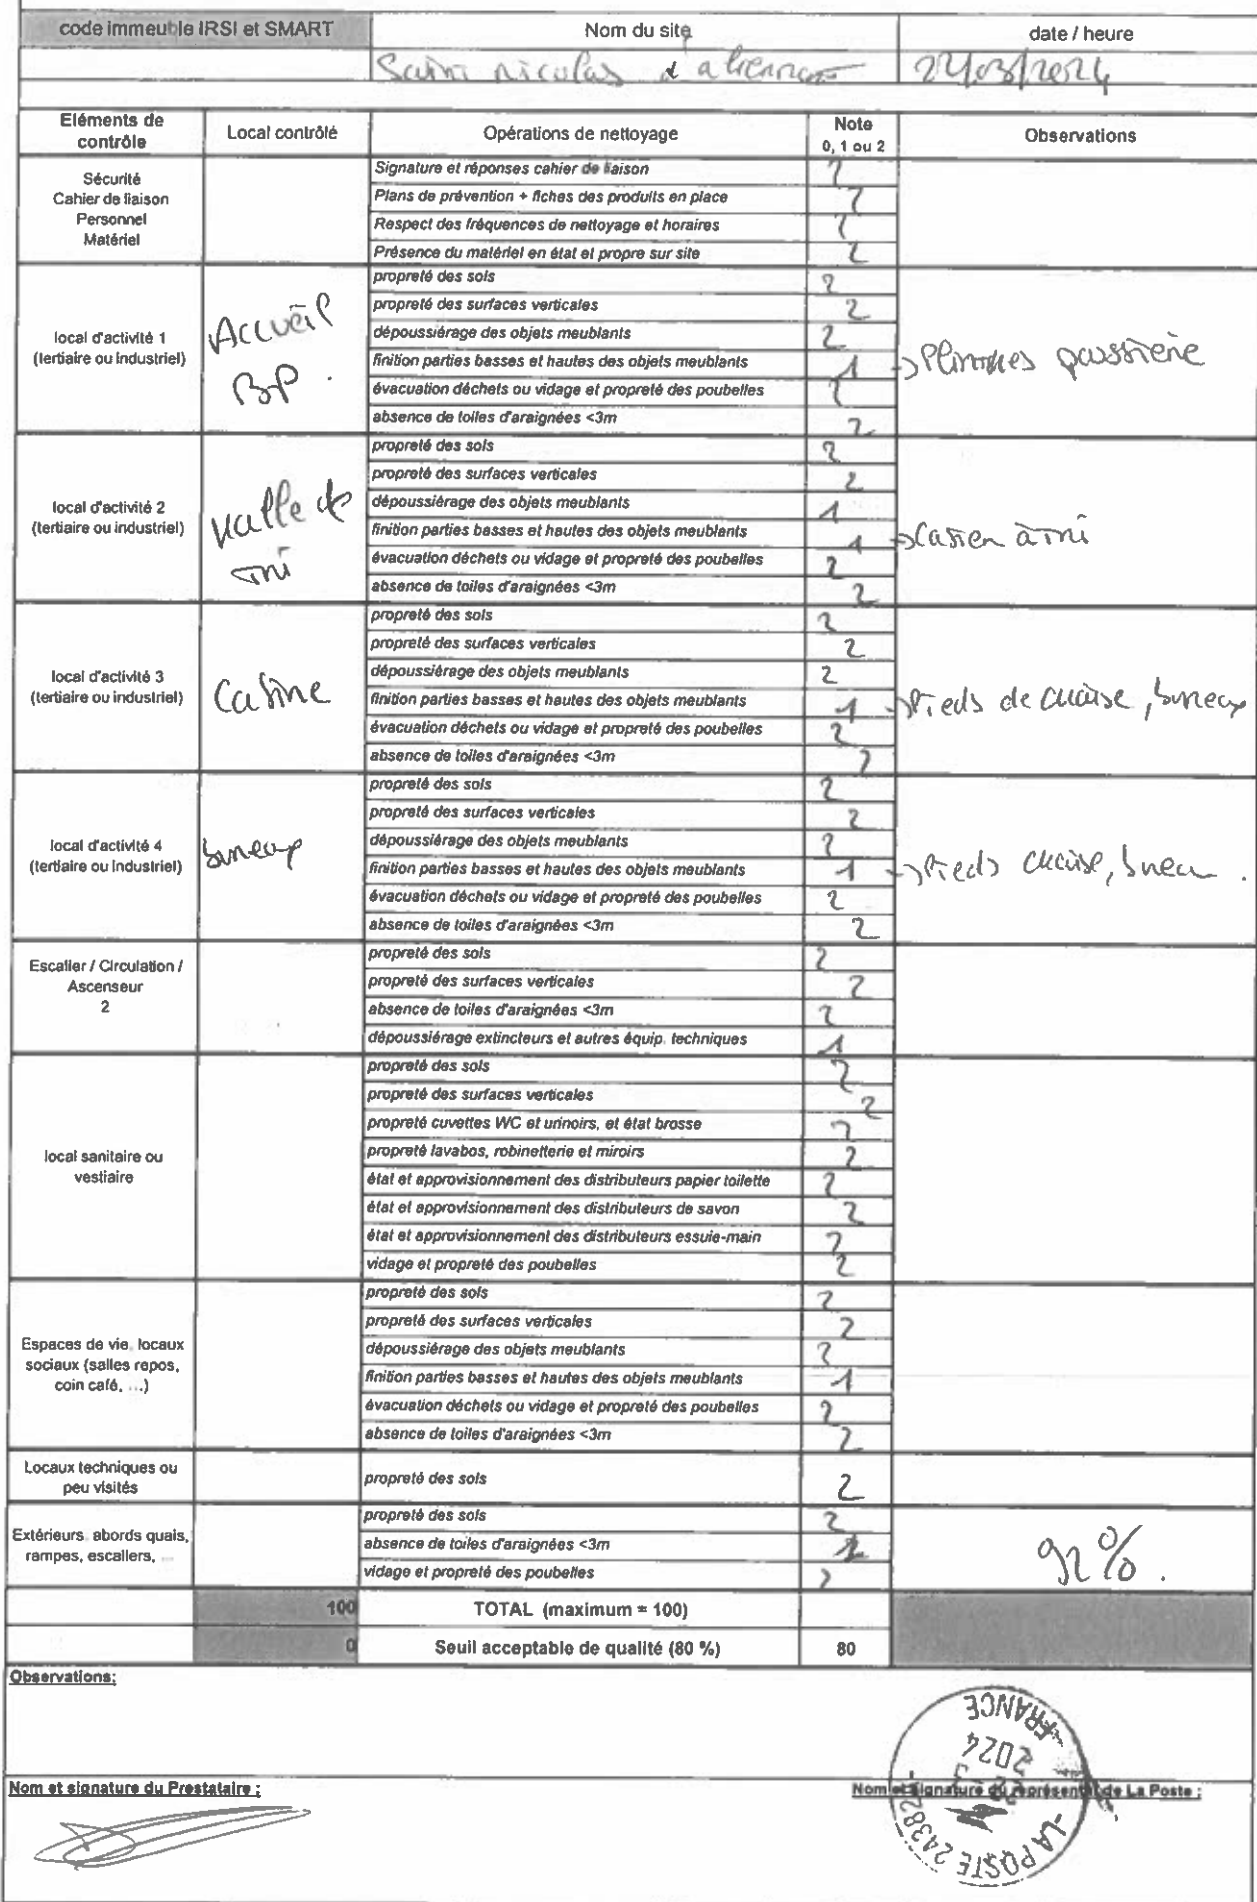 code immeuble IRSI et SMART Nom du site date / heure
Saint nicolas d aliermont 22/03/2024
Eléments de contrôle Local contrôlé Opérations de nettoyage Note 0, 1 ou 2 Observations
Sécurité
Cahier de liaison
Personnel
Matériel
Signature et réponses cahier de liaison 2
Plans de prévention + fiches des produits en place 2
Respect des fréquences de nettoyage et horaires 2
Présence du matériel en état et propre sur site 2
local d'activité 1
(tertiaire ou industriel)
Accueil
BP.
propreté des sols 2
propreté des surfaces verticales 2
dépoussiérage des objets meublants 2
finition parties basses et hautes des objets meublants 1 → Plinthes poussière
évacuation déchets ou vidage et propreté des poubelles 2
absence de toiles d'araignées <3m 2
local d'activité 2
(tertiaire ou industriel)
tri
propreté des sols 2
propreté des surfaces verticales 2
dépoussiérage des objets meublants 1
finition parties basses et hautes des objets meublants 1 → Casier à tri
évacuation déchets ou vidage et propreté des poubelles 2
absence de toiles d'araignées <3m 2
local d'activité 3
(tertiaire ou industriel)
propreté des sols 2
propreté des surfaces verticales 2
dépoussiérage des objets meublants 2
finition parties basses et hautes des objets meublants 1 → Pieds de chaise, bureau
évacuation déchets ou vidage et propreté des poubelles 2
absence de toiles d'araignées <3m 2
local d'activité 4
(tertiaire ou industriel)
bureau
propreté des sols 2
propreté des surfaces verticales 2
dépoussiérage des objets meublants 2
finition parties basses et hautes des objets meublants 1 → Pieds chaise, bureau.
évacuation déchets ou vidage et propreté des poubelles 2
absence de toiles d'araignées <3m 2
Escalier / Circulation /
Ascenseur
2
propreté des sols 2
propreté des surfaces verticales 2
absence de toiles d'araignées <3m 2
dépoussiérage extincteurs et autres équip. techniques 1
local sanitaire ou
vestiaire
propreté des sols 2
propreté des surfaces verticales 2
propreté cuvettes WC et urinoirs, et état brosse 2
propreté lavabos, robinetterie et miroirs 2
état et approvisionnement des distributeurs papier toilette 2
état et approvisionnement des distributeurs de savon 2
état et approvisionnement des distributeurs essuie-main 2
vidage et propreté des poubelles 2
Espaces de vie, locaux
sociaux (salles repos,
coin café, ...)
propreté des sols 2
propreté des surfaces verticales 2
dépoussiérage des objets meublants 2
finition parties basses et hautes des objets meublants 1
évacuation déchets ou vidage et propreté des poubelles 2
absence de toiles d'araignées <3m 2
Locaux techniques ou
peu visités
propreté des sols 2
Extérieurs, abords quais,
rampes, escaliers, ...
propreté des sols 2
absence de toiles d'araignées <3m
vidage et propreté des poubelles 2
92%.
100 TOTAL (maximum = 100)
0 Seuil acceptable de qualité (80 %) 80
Observations:
Nom et signature du Prestataire : Nom et signature du représentant de La Poste :
LA POSTE 24382
2024
FRANCE